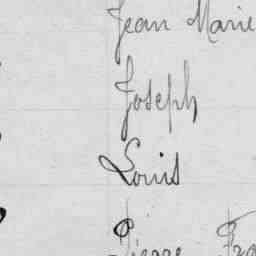 Jean Marie
Joseph
Louis
Pierre Fra